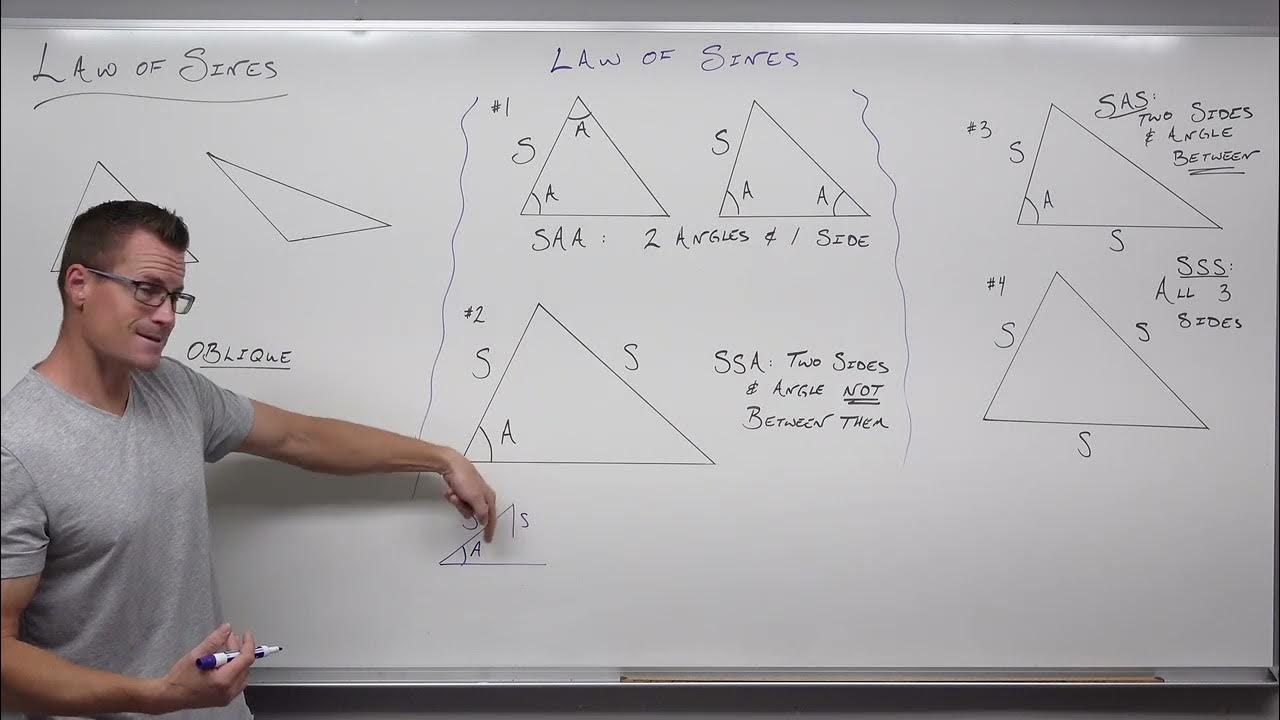 LAW OF SINES
OBLIQUE
LAW OF SINES
#1
A
S
A
S
A
A
SAA: 2 ANGLES & 1 SIDE
#2
S
S
A
SSA: TWO SIDES
& ANGLE NOT
BETWEEN THEM
S
S
A
#3
SAS:
TWO SIDES
& ANGLE
BETWEEN
S
A
S
#4
SSS:
ALL 3
SIDES
S
S
S